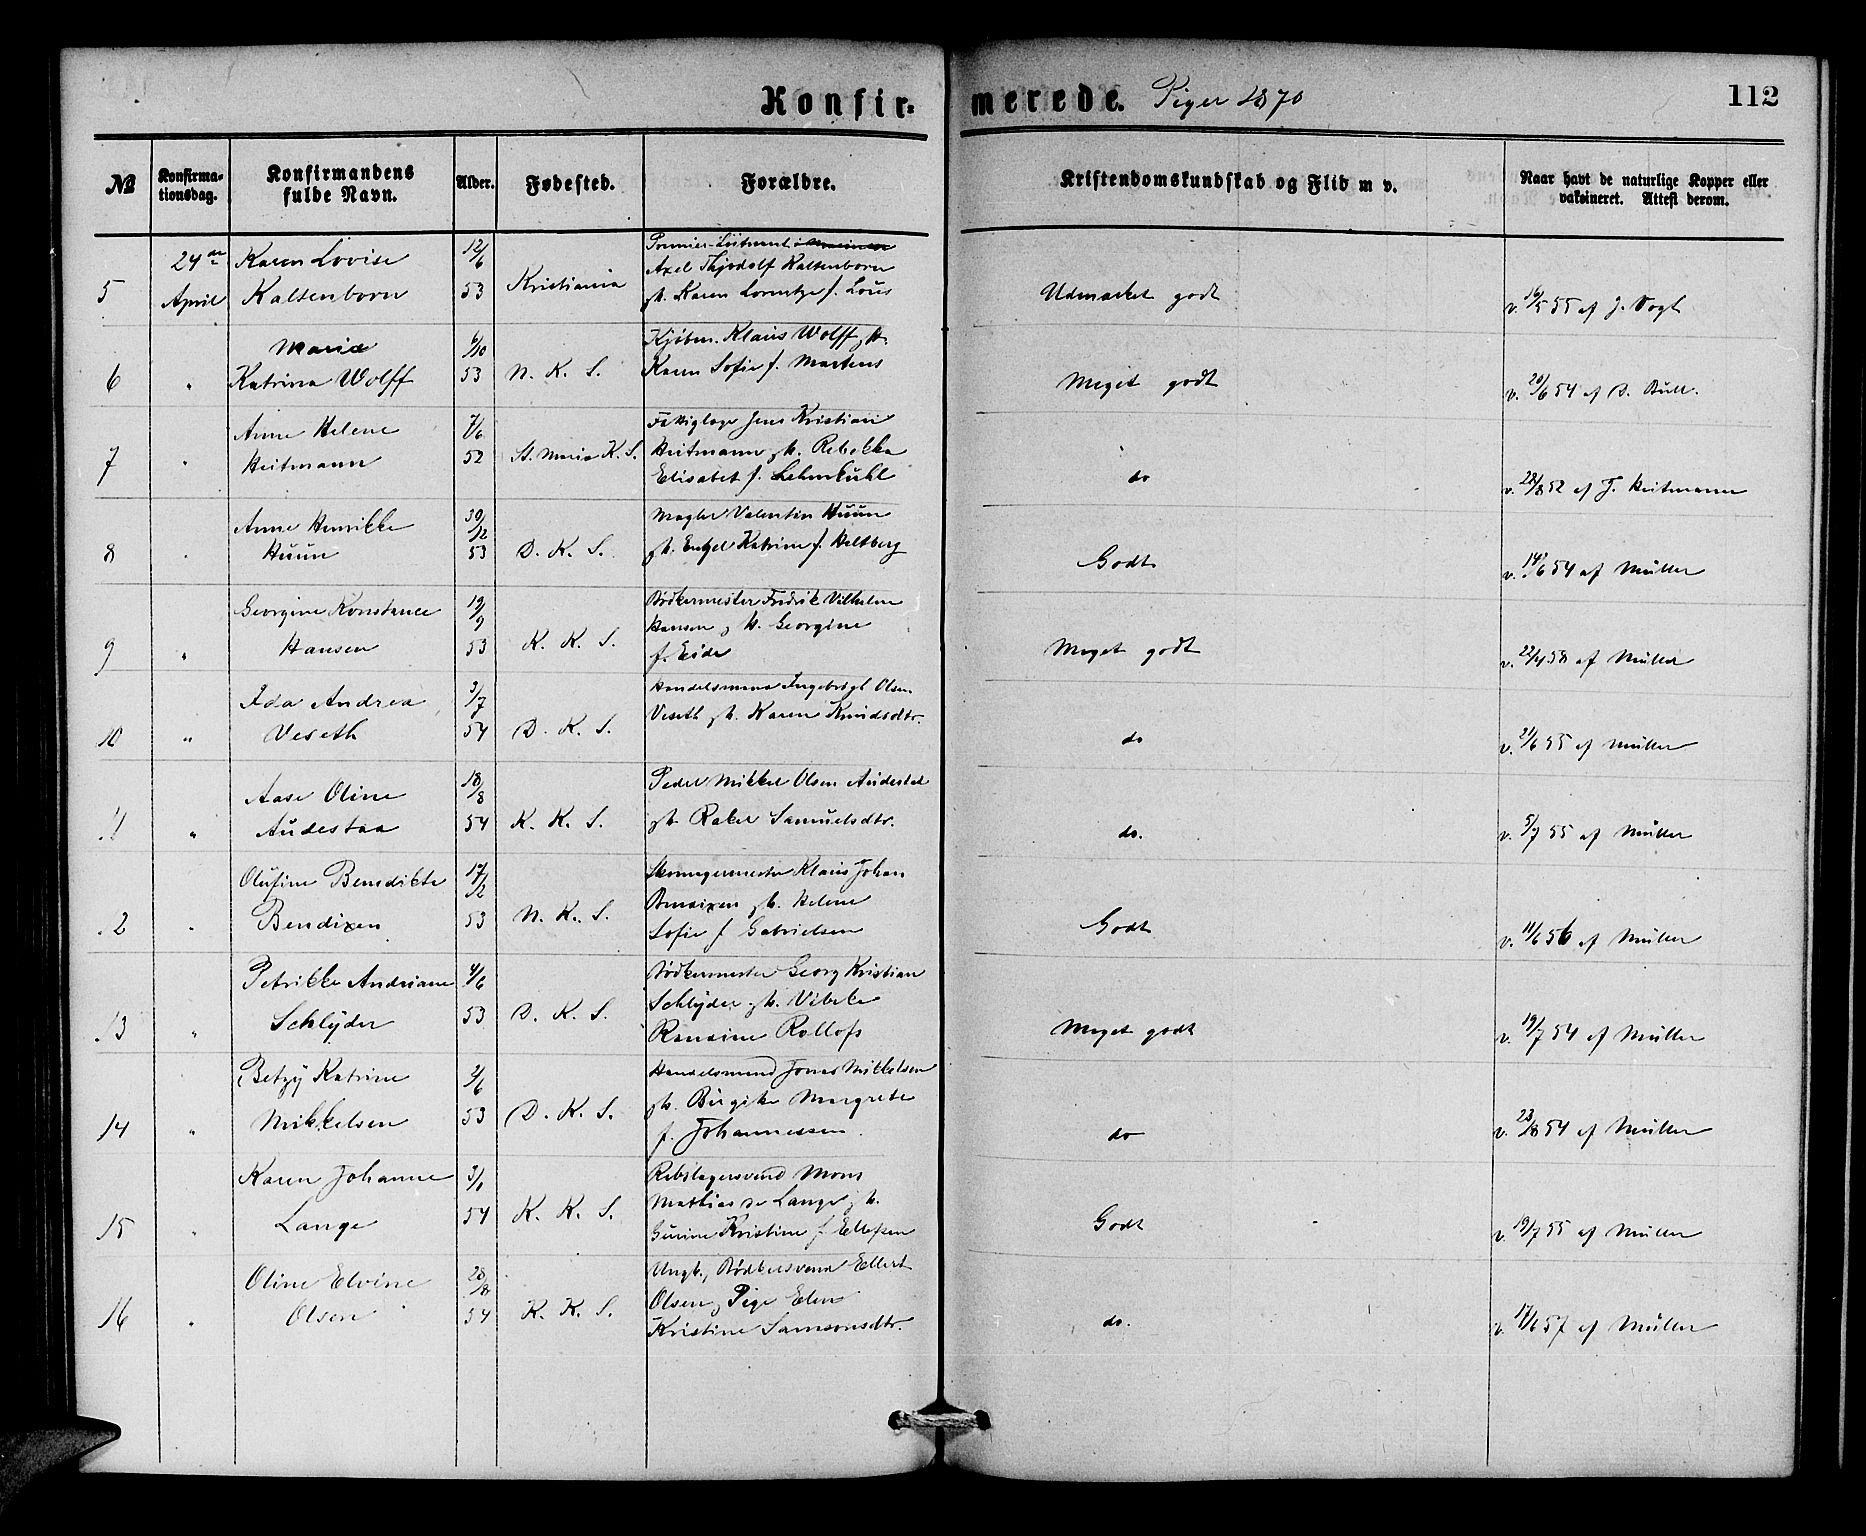 Konfirmerede. Piger 1870
112
№ Konfirmationsdag. Konfirmandens fulde Navn. Alder. Fødested. Forældre. Kristendomskundskab og Flid m v. Naar havt de naturlige Kopper eller vaksineret. Attest derom.
5 24de April Karen Lovise Kaltenborn 12/6 53 Kristiania Premier-Løitnant
Axel Thjodolf Kaltenborn
h. Karen Lorentze f. Lous
Udmærket godt v. 16/5 55 af J. Vogt
6 " Maria Katrina Wolff 6/10 53 N. K. S. Kjøbm. Klaus Wolff, h.
Karen Sofie f. Martens
Meget godt v. 20/6 54 af D. Bull.
7 " Anne Helene Heitmann 7/6 52 St. Maria K. S. Fattiglæge Jens Kristian
Heitmann, h. Rebekka
Elisabet f. Lehmkuhl
do v. 28/8 52 af J. Heitmann
8 " Anne Henrikke Huun 30/12 53 D. K. S. Mægler Valentin Huun
h. Engel Katrine f. Heltberg
Godt v. 14/6 54 af Müller
9 " Georgine Konstance Hansen 19/9 53 K. K. S. Bødkermester Fredrik Vilhelm
Hansen, h. Georgine
f. Eide
Meget godt v. 22/4 58 af Müller
10 " Ida Andrea Veseth 3/7 54 D. K. S. Handelsmand Ingebrigt Olsen
Veseth, h. Karen Knudsdtr.
do v. 21/6 55 af Müller
11 " Aase Oline Audestaa 18/8 54 K. K. S. Pedel Mikkel Olsen Audestad
h. Rakel Samuelsdtr.
do. v. 5/7 55 af Müller
12 " Olufine Benedikte Bendixen 17/12 53 N. K. S. Klaus Johan
Bendixen, h. Helene
Sofie f Gabrielsen
Godt v. 11/6 56 af Müller
13 " Petrikke Andriane Schlyder 4/6 53 D. K. S. Bødkermester Georg Kristian
Schlyder, h. Vibeke
Rollofs
Meget godt v. 19/7 54 af Müller
14 " Betzy Katrine Mikkelsen 3/6 53 D. K. S. Handelsmand Jonas Mikkelsen
h. Birgitte Margrete
f. Johannessen.
do v. 23/8 54 af Müller
15 " Karen Johanne Lange 3/1 54 K. K. S. Rebslagersvend Mons
Mathias Lange, h.
Gurine Kristine f. Ellefsen
Godt v. 19/7 55 af Müller
16 " Oline Elvine Olsen 28/8 54 K. K. S. Ungk., Bødkersvend Ellert
Olsen, Pige Elen
Kristine Samsonsdtr.
do. v. 17/6 57 af Müller